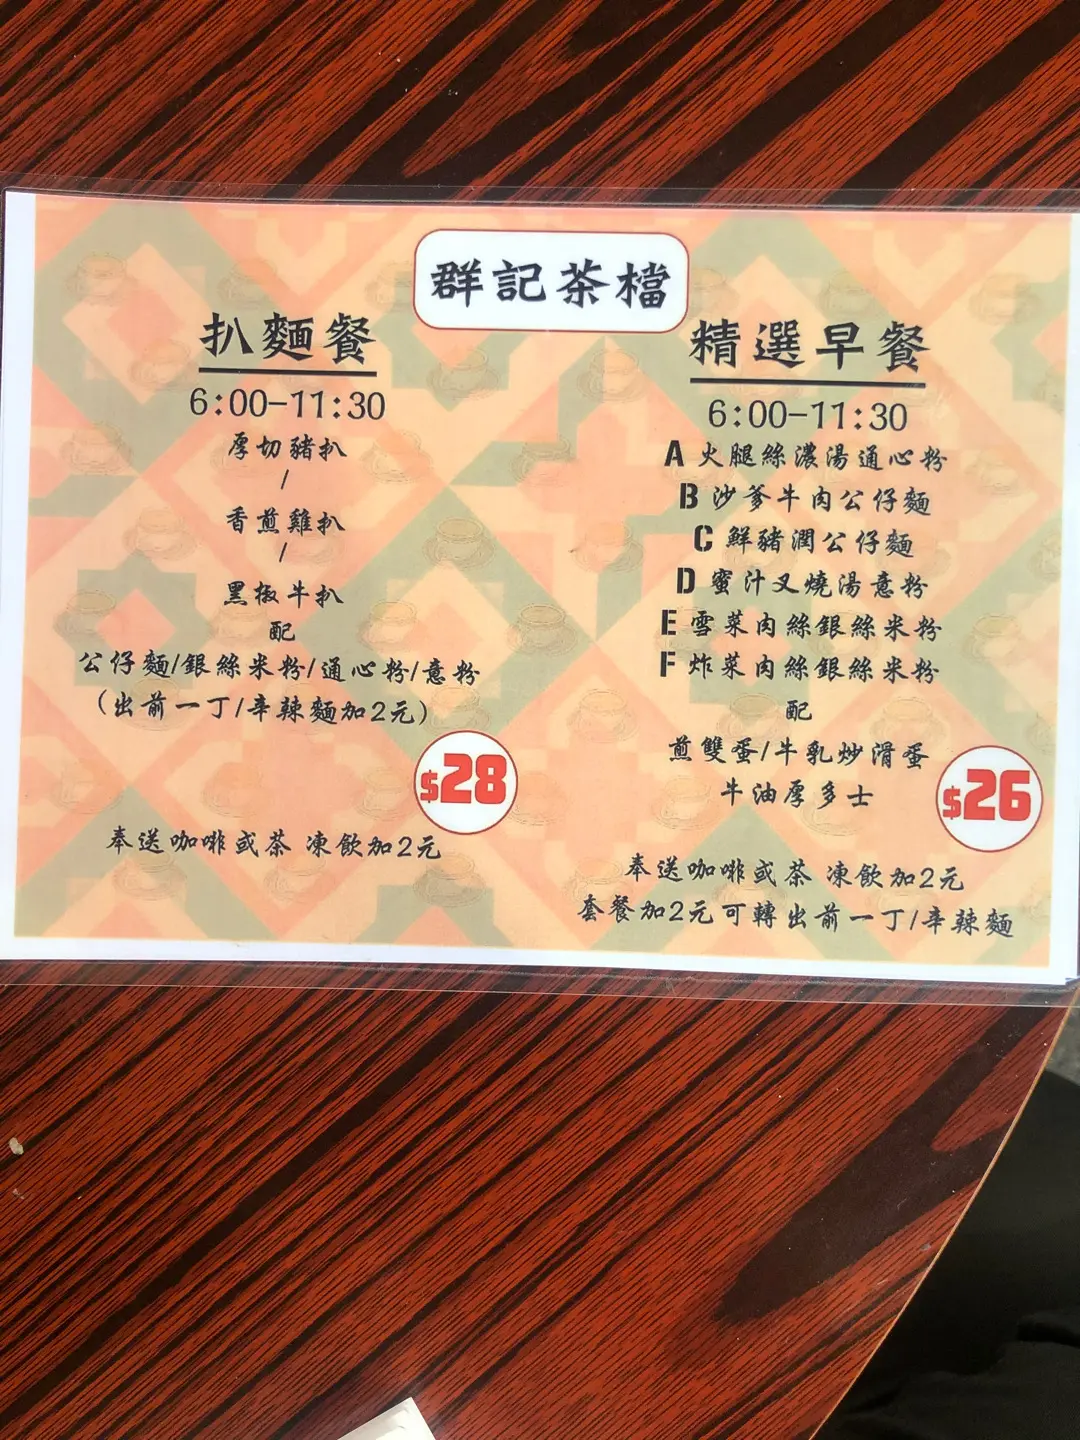 群記茶檔
扒麵餐
6:00-11:30
厚切豬扒
/
香煎雞扒
/
黑椒牛扒
配
公仔麵/銀絲米粉/通心粉/意粉
(出前一丁/辛辣麵加2元)
$28
奉送咖啡或茶 凍飲加2元
精選早餐
6:00-11:30
A 火腿絲濃湯通心粉
B 沙爹牛肉公仔麵
C 鮮豬潤公仔麵
D 蜜汁叉燒湯意粉
E 雪菜肉絲銀絲米粉
F 炸菜肉絲銀絲米粉
配
煎雙蛋/牛乳炒滑蛋
牛油厚多士
$26
奉送咖啡或茶 凍飲加2元
套餐加2元可轉出前一丁/辛辣麵